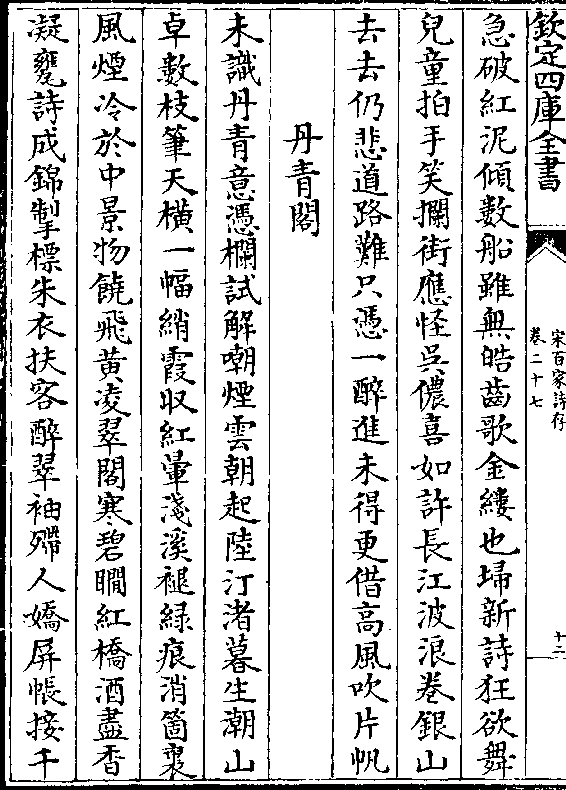 欽定四庫全書
宋百家詩存
卷二十七
十二
急破紅泥傾數船雖無皓齒歌金縷也埽新詩狂欲舞
兒童拍手笑攔街應怪吳儂喜如許長江波浪卷銀山
去去仍悲道路難只憑一醉進未得更借高風吹片帆
丹青閣
未識丹青意憑欄試解嘲煙雲朝起陸汀渚暮生潮山
卓數枝筆天橫一幅綃霞収紅暈淺溪褪綠痕消箇裏
風煙冷於中景物饒飛黃凌翠閣寒碧瞯紅橋酒盡香
凝甕詩成錦掣標朱衣扶客醉翠袖殢人嬌屏帳接千